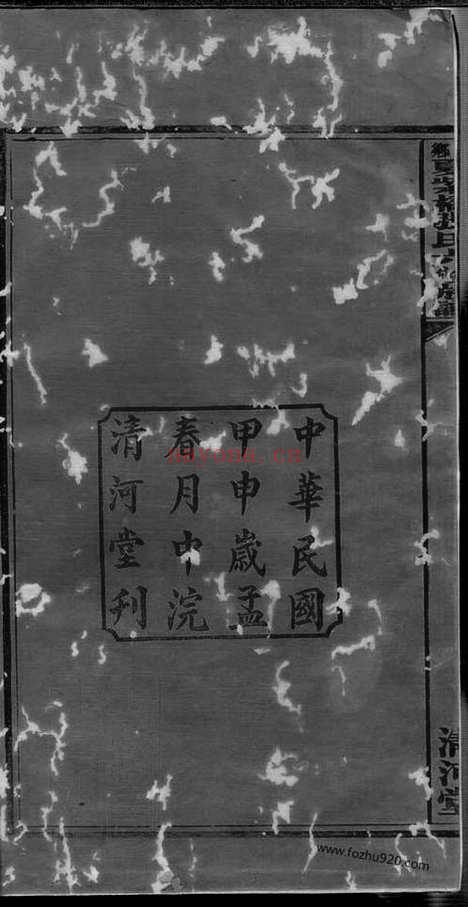 中華民國
甲申歲孟
春月中浣
清河堂刋
清河堂
nayona.cn
www.fozhu920.com